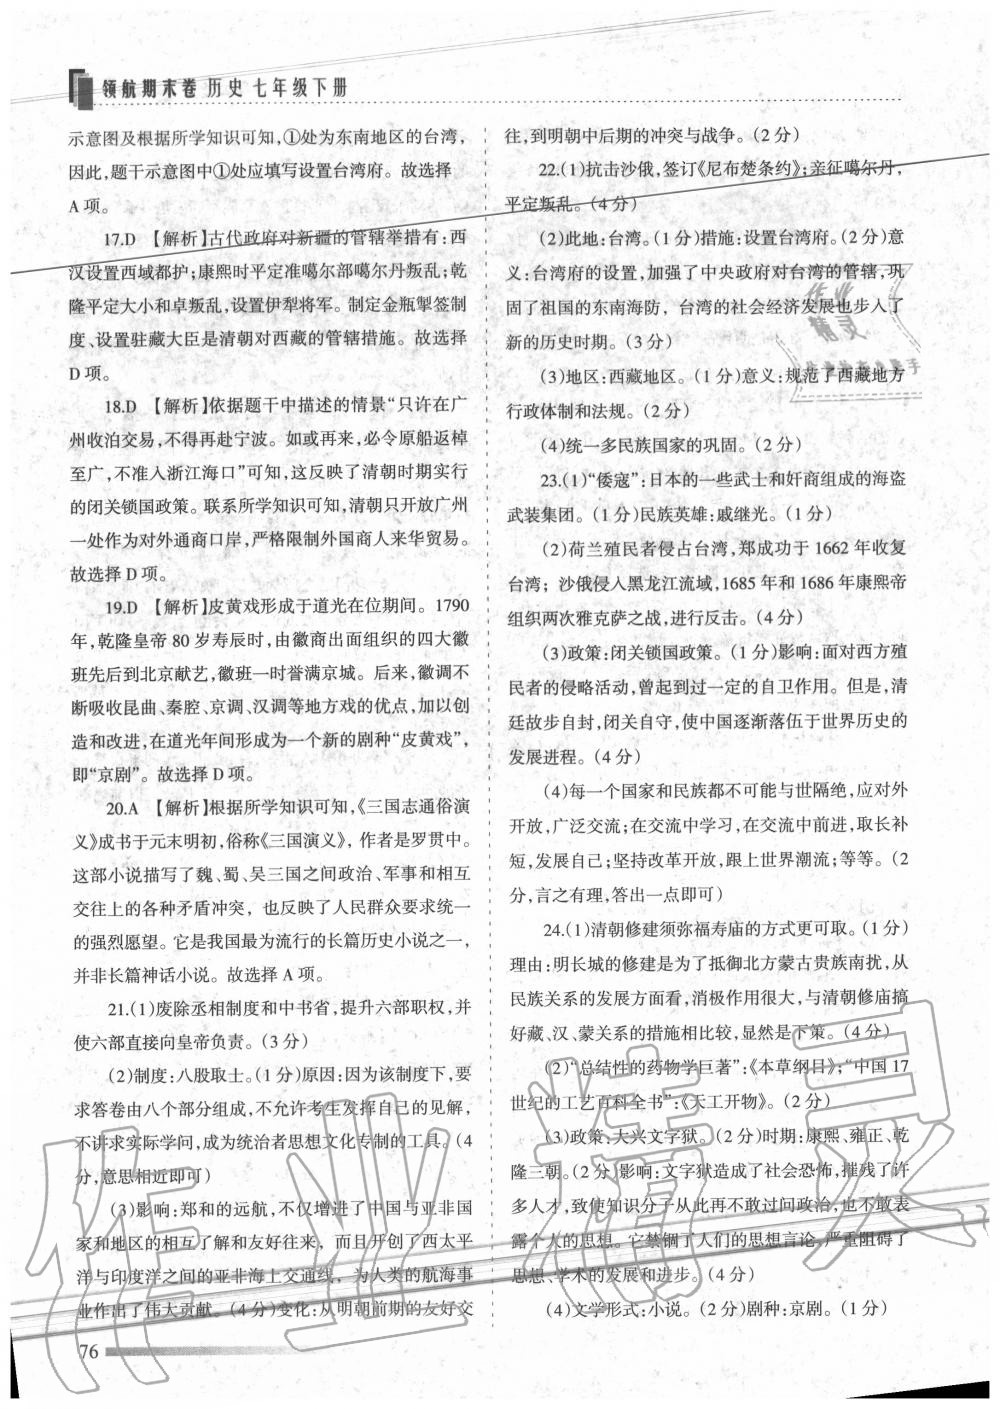 领航期末卷 历史 七年级下册
示意图及根据所学知识可知,①处为东南地区的台湾,
因此,题干示意图中①处应填写设置台湾府。故选择
A 项。
17.D 【解析】古代政府对新疆的管辖举措有:西
汉设置西域都护;康熙时平定准噶尔部噶尔丹叛乱;乾
隆平定大小和卓叛乱,设置伊犁将军。制定金瓶掣签制
度、设置驻藏大臣是清朝对西藏的管辖措施。故选择
D 项。
18.D 【解析】依据题干中描述的情景“只许在广
州收泊交易,不得再赴宁波。如或再来,必令原船返棹
至广,不准入浙江海口”可知,这反映了清朝时期实行
的闭关锁国政策。联系所学知识可知,清朝只开放广州
一处作为对外通商口岸,严格限制外国商人来华贸易。
故选择 D 项。
19.D 【解析】皮黄戏形成于道光在位期间。1790
年,乾隆皇帝 80 岁寿辰时,由徽商出面组织的四大徽
班先后到北京献艺,徽班一时誉满京城。后来,徽调不
断吸收昆曲、秦腔、京调、汉调等地方戏的优点,加以创
造和改进,在道光年间形成为一个新的剧种“皮黄戏”,
即“京剧”。故选择 D 项。
20.A 【解析】根据所学知识可知,《三国志通俗演
义》成书于元末明初,俗称《三国演义》,作者是罗贯中。
这部小说描写了魏、蜀、吴三国之间政治、军事和相互
交往上的各种矛盾冲突，也反映了人民群众要求统一
的强烈愿望。它是我国最为流行的长篇历史小说之一,
并非长篇神话小说。故选择 A 项。
21.(1)废除丞相制度和中书省,提升六部职权,并
使六部直接向皇帝负责。(3 分)
(2)制度:八股取士。(1 分)原因:因为该制度下,要
求答卷由八个部分组成,不允许考生发挥自己的见解,
不讲求实际学问,成为统治者思想文化专制的工具。(4
分,意思相近即可)
(3)影响:郑和的远航,不仅增进了中国与亚非国
家和地区的相互了解和友好往来，而且开创了西太平
洋与印度洋之间的亚非海上交通线，为人类的航海事
业作出了伟大贡献。(4 分)变化:从明朝前期的友好交
76
往,到明朝中后期的冲突与战争。(2 分)
22.(1)抗击沙俄,签订《尼布楚条约》;亲征噶尔丹,
平定叛乱。(4 分)
(2)此地:台湾。(1 分)措施:设置台湾府。(2 分)意
义:台湾府的设置,加强了中央政府对台湾的管辖,巩
固了祖国的东南海防，台湾的社会经济发展也步入了
新的历史时期。(3 分)
(3)地区:西藏地区。(1 分)意义:规范了西藏地方
行政体制和法规。(2 分)
(4)统一多民族国家的巩固。(2 分)
23.(1)“倭寇”:日本的一些武士和奸商组成的海盗
武装集团。(1 分)民族英雄:戚继光。(1 分)
(2)荷兰殖民者侵占台湾,郑成功于 1662 年收复
台湾；沙俄侵入黑龙江流域,1685 年和 1686 年康熙帝
组织两次雅克萨之战,进行反击。(4 分)
(3)政策:闭关锁国政策。(1 分)影响:面对西方殖
民者的侵略活动,曾起到过一定的自卫作用。但是,清
廷故步自封,闭关自守,使中国逐渐落伍于世界历史的
发展进程。(4 分)
(4)每一个国家和民族都不可能与世隔绝,应对外
开放,广泛交流;在交流中学习,在交流中前进,取长补
短,发展自己;坚持改革开放,跟上世界潮流;等等。(2
分,言之有理,答出一点即可)
24.(1)清朝修建须弥福寿庙的方式更可取。(1 分)
理由:明长城的修建是为了抵御北方蒙古贵族南扰,从
民族关系的发展方面看,消极作用很大,与清朝修庙搞
好藏、汉、蒙关系的措施相比较,显然是下策。(4 分)
(2)“总结性的药物学巨著”:《本草纲目》;“中国 17
世纪的工艺百科全书”:《天工开物》。(2 分)
(3)政策:大兴文字狱。(2 分)时期:康熙、雍正、乾
隆三朝。(2 分)影响:文字狱造成了社会恐怖,摧残了许
多人才,致使知识分子从此再不敢过问政治,也不敢表
露个人的思想。它禁锢了人们的思想言论,严重阻碍了
思想、学术的发展和进步。(4 分)
(4)文学形式:小说。(2 分)剧种:京剧。(1 分)
作业
精灵
作业精灵